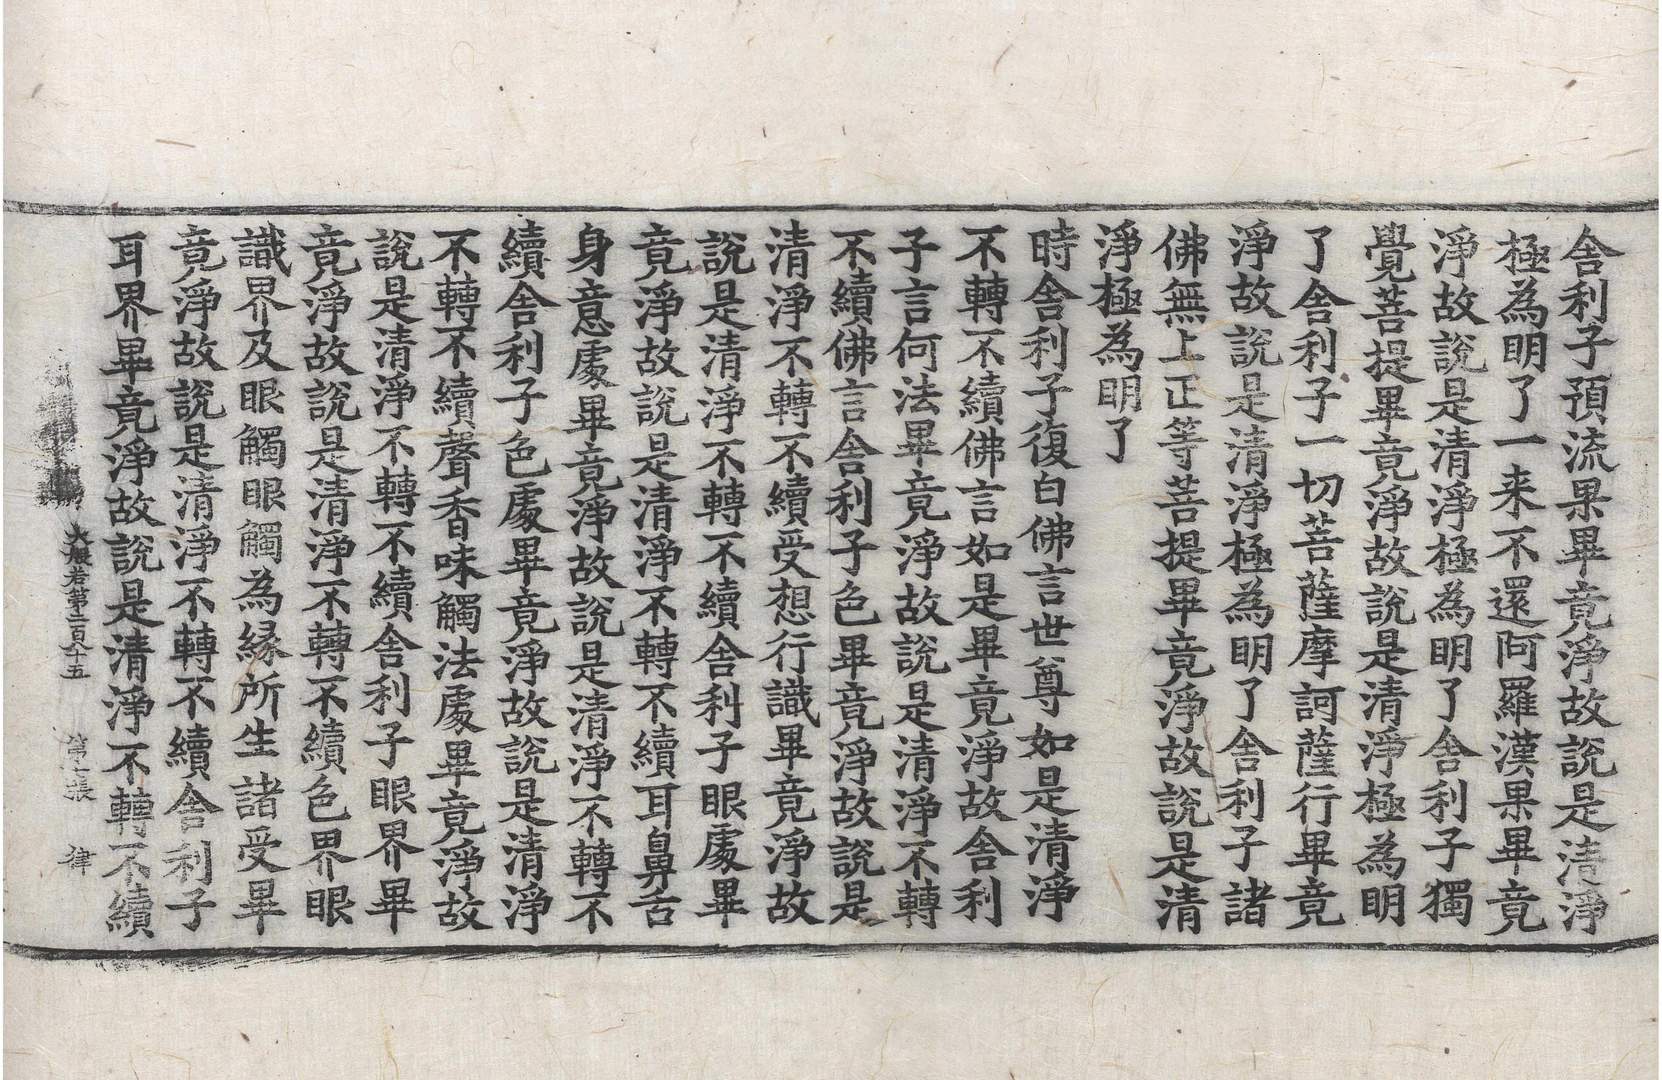 舍利子預流果畢竟淨故說是清淨
極為明了一来不還阿羅漢果畢竟
淨故說是清淨極為明了舍利子獨
覺菩提畢竟淨故說是清淨極為明
了舍利子一切菩薩摩訶薩行畢竟
淨故說是清淨極為明了舍利子諸
佛無上正等菩提畢竟淨故說是清
淨極為明了
時舍利子復白佛言世尊如是清淨
不轉不續佛言如是畢竟淨故舍利
子言何法畢竟淨故說是清淨不轉
不續佛言舍利子色畢竟淨故說是
清淨不轉不續受想行識畢竟淨故
說是清淨不轉不續舍利子眼處畢
竟淨故說是清淨不轉不續耳鼻舌
身意處畢竟淨故說是清淨不轉不
續舍利子色處畢竟淨故說是清淨
不轉不續聲香味觸法處畢竟淨故
說是清淨不轉不續舍利子眼界畢
竟淨故說是清淨不轉不續色界眼
識界及眼觸眼觸為緣所生諸受畢
竟淨故說是清淨不轉不續舍利子
耳界畢竟淨故說是清淨不轉不續
大般若第二百八十五 第七張 律